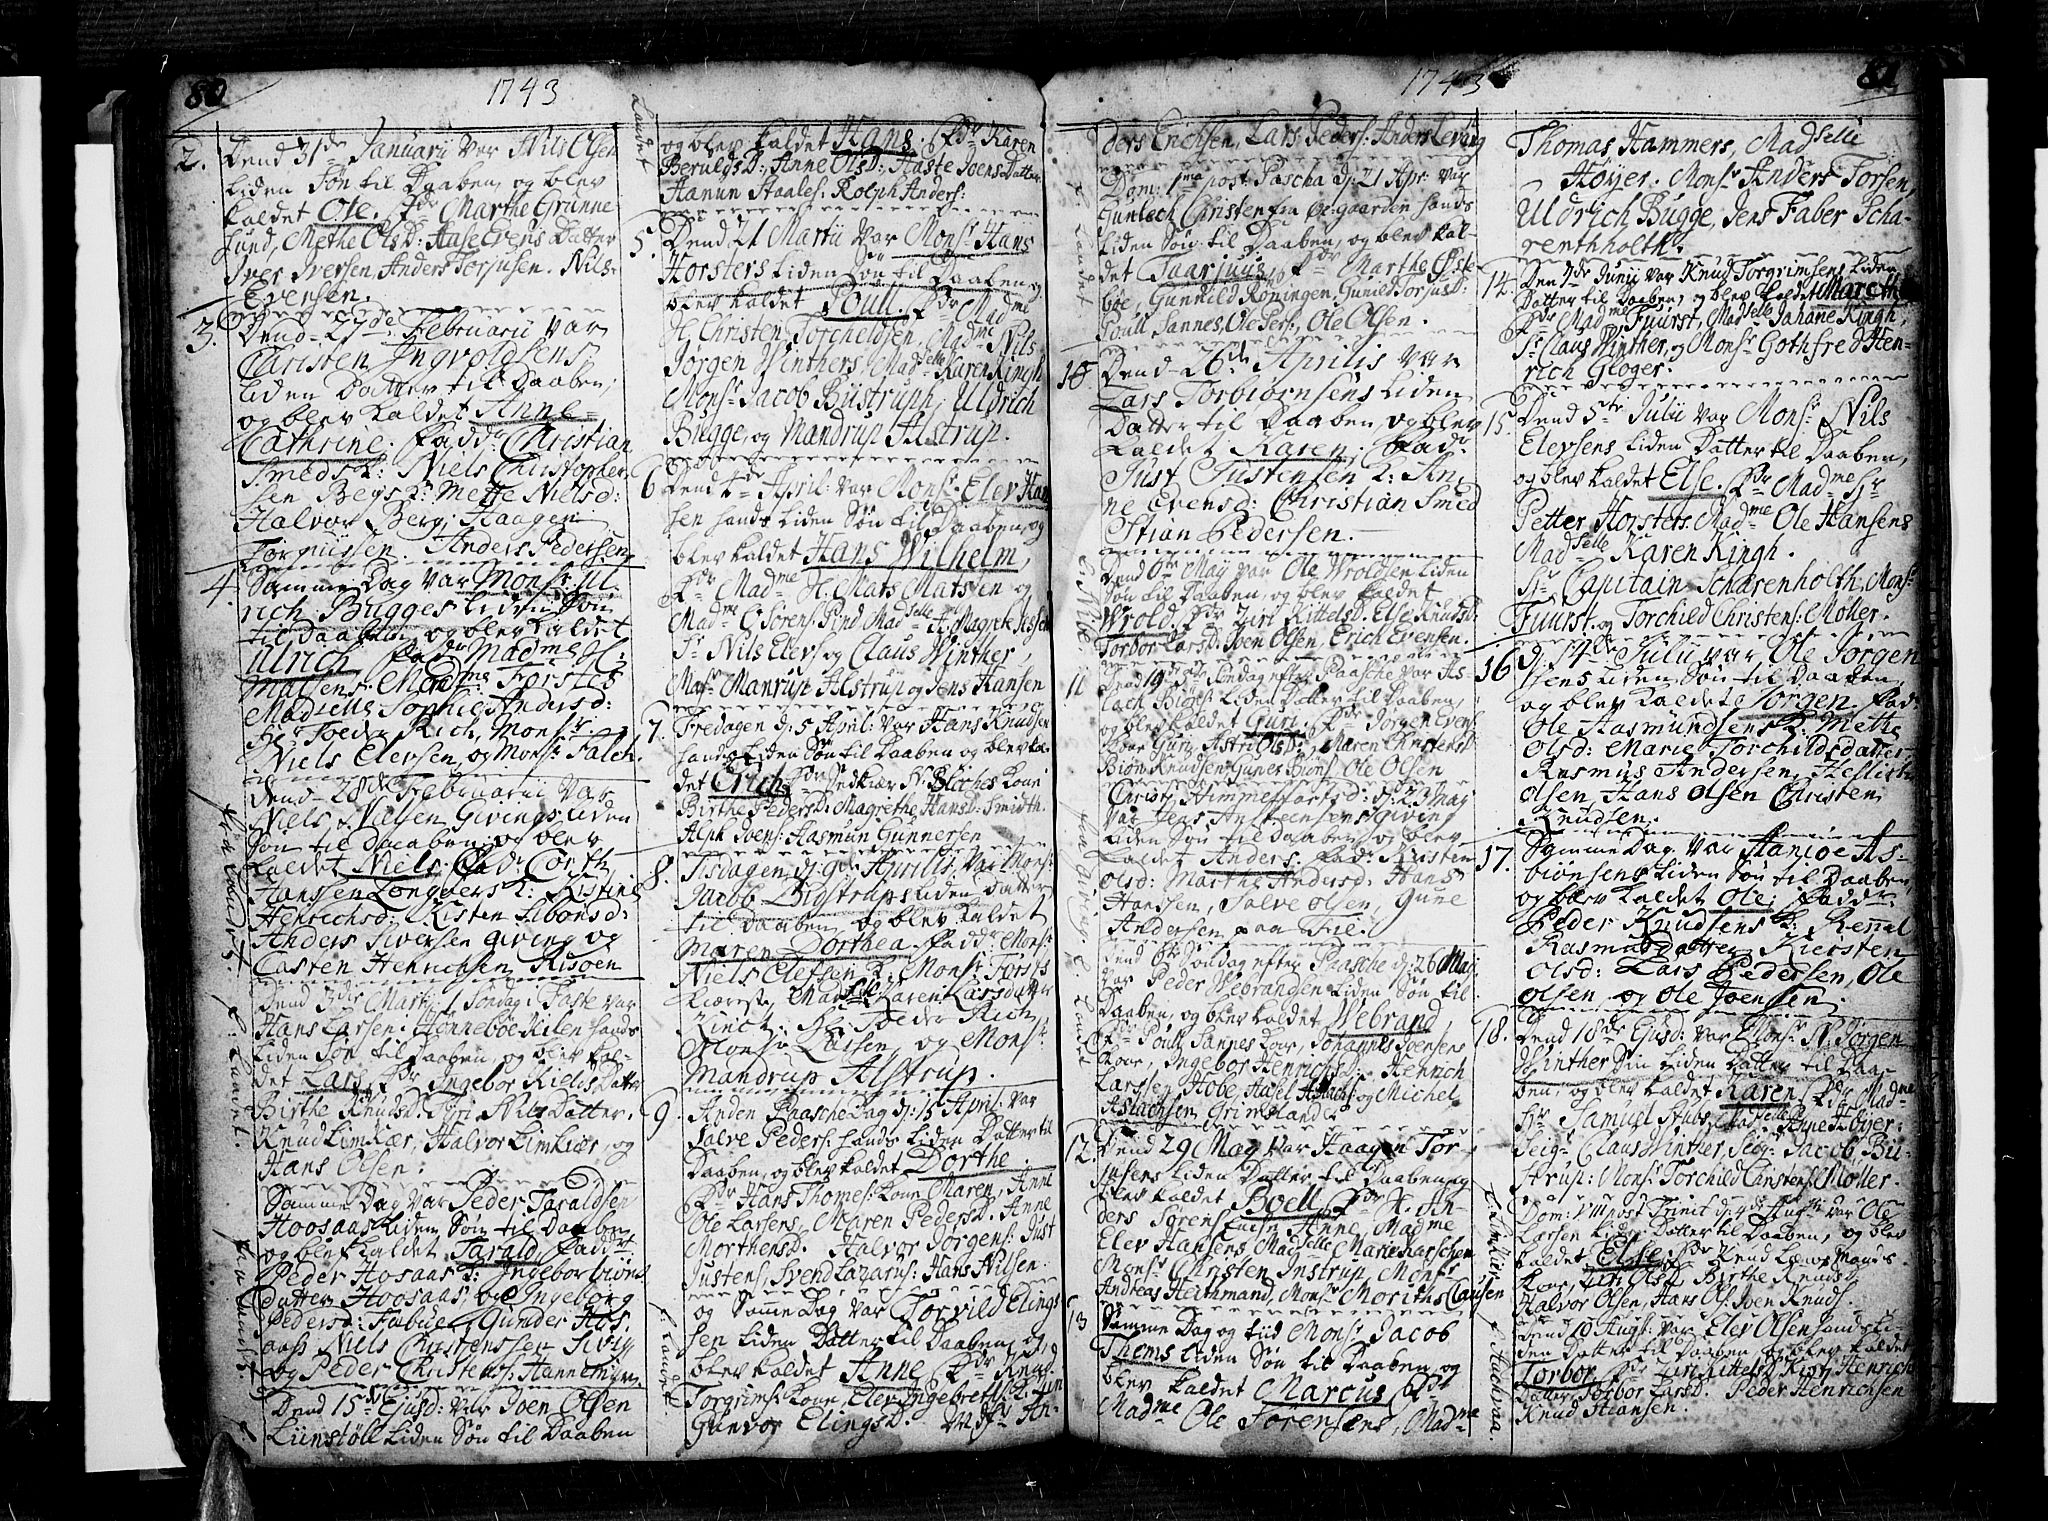 80
1743
2. Dend 31de Januarii var Nils Olsen
liden Søn til Daaben, og blev
kaldet Ole. Fdr Marthe Grünne-
sund, Methe OlsD: Aase Evens Datter
Iver Iversen, Anders Torjusen. Nils
Evensen.
3. Dend 27de Februarii var
Christen Ingvoldsens
liden Datter til Daaben,
og blev kaldet Anne
Cathrine. Faddr Christian
Smeds K: Niels Christopher-
sen Begs K: Mette Nielsd:
Halvor Berg, Haagen
Anders Pedersen
4. Samme Dag var Monsr Ul
rich Bugges liden Søn
til Daaben og blev kaldet
Ulrich Faddr Madme H:
Matsens Madme Forsters
Madselle Sophie Andersd:
Hr Toeder Rich, Monsr
Niels Elevsen, og Monsr Falch.
Dend 28de Februarii var
Niels Nielsen Givings liden
Søn til Daaben, og blev
kaldet Niels, Fad: Corth
Hanssen K: Kistine
Henrichsd: Kisten Sibønsd:
Anders Siversen Giving og
Casten Henrichsen Risøen
Dend 3die Martij 1 Søndag i Faste var
Hans Larsen Hønnebøe Kilen hands
liden Søn til Daaben, og blev kal-
det Lars, Fdr Ingebor Nielis Datter
Birthe KnudsD: Siri Nils Datter,
Knud Limkiær, Halvor Limkiær, og
Hans Olsen:
Samme Dag var Peder Taraldsen
Hoosaas liden Søn til Daaben
og blef kaldet Tarald, Faddr:
Peder Hosaas K: Ingebor Biøns
datter Hoosaas, og Ingeborg
Pedersd: Gunder Hos-
aas Niels Christenssen
og Peder Christens: Hannemyr
Dend 15de Ejusd: var Joen Olsen
Liinstøll liden Søn til Daaben
og blev kaldet Hans. Fdr Karen
BeruldsD: Anne OlsD: Aaste Joens Datter
Hanun Staales: Rolph Anders:
5. Dend 21 Martii var Monsr Hans
Horsters liden Søn til Daaben og
blev kaldet Poull. Fdr Madme
H. Christen Torcheldsen, Madme Nils
Jørgen Winthers, Madselle Karen Kingh
Monsr Jacob Biistruph, Uldrich
Bugge, og Mandrup Alstrup.
6 Dend 4de April: var Monsr Elev Han
sen hands liden Søn til Daaben, og
blev kaldet Hans Wilhelm,
Fdr Madme H. Mats Matsen og
Madme C. Sørens: Sind Madselle A: Magrete
Sr Nils Elevs og Claus Winther,
Monsr Manrup Alstrup og Jens Hansen
7. Fredagen d: 5 April: var Hans Knudsen
hands liden Søn til Daaben og blev kal
det Erich
Birthe PedersD: Magrethe HansD: Smidth.
Alph Joens: Aasmun Gunnersen
8. Tisdagen d: 9de Aprilis var Monsr
Jacob Bistrups liden datter
til Daaben, og blev kaldet
Maren Dorthea. Faddr Monsr
Niels Elefsen K: Monsr Forsts
kiæreste, Madselle Karen Larsdatter
Kinck, Hr Toeder Rich,
Monsr Larsen, og Monsr
Mandrup Alstrup.
9. Anden Paasche Dag d: 15 April: var
Salve Peders: hands liden Datter til
Daaben, og blev kaldet Dorthe.
Fdr Hans Thomes: kone Maren, Anne
Ole Larsens, Maren PedersD. Anne
MorthensD. Halvor Jørgens: Just
Justens, Svend Lazarus: Hans Nilsen.
og Samme Dag var Torvild Elings
sen liden Datter til Daaben, og
blev kaldet Anne Fdr Knud
Torgrims: kone, Elev Ingebrets: K:
Gunvor ElingsD. Msr An-
81
1743
ders Erichsen, Lars Peders: Anders Leving
Dom: 1ma post Pascha d: 21 Apr. var
Gunlech Christen fra Øygaarden hands
liden Søn til Daaben, og blev kal-
det Taarjuus, Fdr Marthe Øste
bøe, Gunnild Røningen, Gunild TorjusD:
Poull Sannes, Ole Pers:, Ole Olsen.
10 Dend 26de Aprilis var
Lars Torbiørnsens liden
Datter til Daaben, og blev
kaldet Karen, Fadr
Just Justensen K: An-
ne Evensd: Christian Smed
Stian Pedersen.
Dend 6te Maÿ var Ole Wroldsen liden
Søn til Daaben, og blev kaldet
Wrold. Fdr Ziri KittelsD. Else KnudsD:
Torbor LarsD: Joen Olsen, Erich Evensen.
11 Dend 19 5te Søndag efter Paasche var As-
lach Biøns: liden Datter til Daaben,
og blev kaldet Guri, Fdr Jørgen Evens:
koor Guri, Astri OlsD:, Maren ChristensD.
Biøn Knudsen, Guner Biøns: Ole Olsen
Christi Himmelfartsd: d: 23 Maÿ
var Jens Anstensens giving
liden Søn til Daaben, og blev
kaldet Anders. Fad: Kristen
olsd: Marthe Andersd: Hans
Hansen, Salve Olsen, Gune
Andersen paa Tie:
Dend 6te Søndag efter Paasche d: 26 Maÿ
var Peder Webranden liden Søn til
Daaben, og blev kaldet Webrand,
Fdr Poull Sannes koor, Johannes Joensens
koor, Ingebor HenrichsD: Henrich
Larssen, Hobe, Aasel og Michel
Aslachsen Grimsland
12. Dend 29 Maÿ var Haagen Tor-
jusens liden Datter til Daaben, og
blev kaldet Boell, Fdr H. An-
ders Sørens: Anne, Madme
Elev Hansens, Madselle Marie
Monsr Christen Instrup, Monsr
Andreas Heithmand, Monsr Moriths Clausen
13 Samme Dag og tiid Monsr Jacob
Thems liden Søn til Daaben, og
blev kaldet Marcus Fdr
Madme Ole Sørensens, Madme
Thomas Hammers, Madselle
Høyer. Monsr Anders Torsen,
Uldrich Bugge, Jens Faber Scha-
renthholth.
14. Den 7de Junii var Knud Torgrimsens liden
Datter til Daaben, og blev kaldet
Fdr Madme Fuurst, Madselle Jahane Kingh,
Sr Claus Winther, og Monsr Gothfred Hen-
rich Gloger.
15. Dend 5te Julii var Monsr Nils
Elevsens liden Datter til Daaben,
og blev kaldet Else. Fdr Madme Hr
Petter Horsters. Madme Ole Hansens
Madselle Karen Kingh.
Hr Capitain Scharenholth, Monsr
Fuurst, og Torchild Christens: Møller.
16 d: 14de Julii var Ole Jørgen
sens liden Søn til Daaben,
og blev kaldet Jørgen. Fad:
Ole Aasmundsens K: Mette
Olsd: Marie Torchildsdatter
Rasmus Andersen,
Olsen, Hans Olsen Christen
Knudsen.
17. Samme Dag var Haniøe As-
biønsens liden Søn til Daaben
og blev kaldet Ole, Faddr
Peder Knudsens K:
Rasmusdatter Kiersten
Olsd: Lars Pedersen, Ole
Olsen, og Ole Joensen.
18. Dend 18de Ejusd: var Monsr N. Jørgen
Winther Sin liden Datter til Daa-
ben, og blev kaldet Karen, Fdr Madme
Hr Samuel Stubs, Madselle Anne Høÿer.
Seigr Claus Winther, Seigr Jacob Bii-
strup: Monsr Torchild Christens: Møller.
Dom: VIII post Trinit d: 4de Aug: var Ole
Larsen liden Datter til Daaben, og blev
kaldet Else. Fdr Knud
Koor, Siri OlsD. Birthe KnudsD,
Halvor Olsen, Hans Ols: Joen Knuds:
Dend 10 Augs: var Elev Olsen hands li
den Datter til Daaben, og blev kaldet
Torbor, Fdr Ziri KittelsD: Kirst Henrich
Datter, Torbor LarsD. Peder Henrichsen
Knud Stiansen.